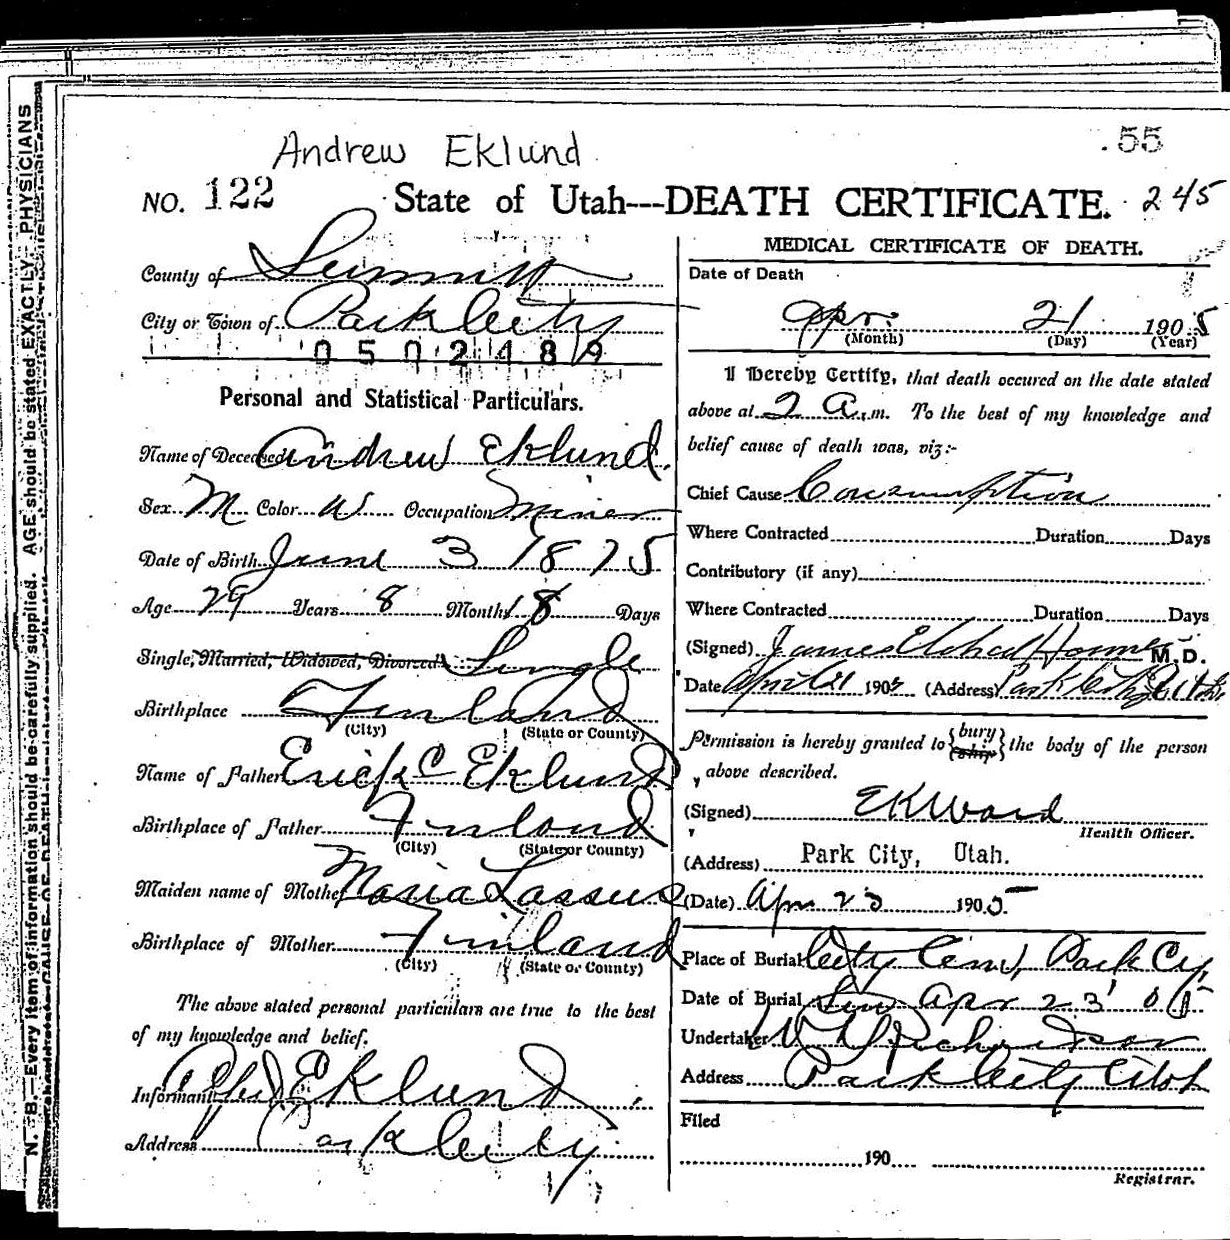 Andrew Eklund
.55
NO. 122 State of Utah---DEATH CERTIFICATE. 245
County of Summit
City or Town of Park City
0 5 0 2 4 8 9
Personal and Statistical Particulars.
Name of Deceased Andrew Eklund.
Sex M Color W Occupation Miner
Date of Birth June 3 1875
Age 29 Years 8 Months 18 Days
Single, Married, Widowed, Divorced Single
Birthplace Finland
(City) (State or County)
Name of Father Erick C Eklund
Birthplace of Father Finland
(City) (State or County)
Maiden name of Mother Maria Lassus
Birthplace of Mother Finland
(City) (State or County)
The above stated personal particulars are true to the best
of my knowledge and belief.
Informant Eklund
Address Park City
MEDICAL CERTIFICATE OF DEATH.
Date of Death
Apr. 21 1905
(Month) (Day) (Year)
I Hereby Certify, that death occured on the date stated
above at 2 A.m. To the best of my knowledge and
belief cause of death was, viz:-
Chief Cause Consumption
Where Contracted Duration Days
Contributory (if any)
Where Contracted Duration Days
(Signed) James M.D.
Date April 21 1905 (Address) Park City Utah
Permission is hereby granted to {bury ship} the body of the person
above described.
(Signed) EKWard
Health Officer.
(Address) Park City, Utah.
(Date) Apr 23 1905
Place of Burial City Cem, Park Cy,
Date of Burial Apr 23' 05
Undertaker Richardson
Address Park City Utah
Filed
190
Registrar.
N. B.—Every item of information should be carefully supplied. AGE should be stated EXACTLY. PHYSICIANS